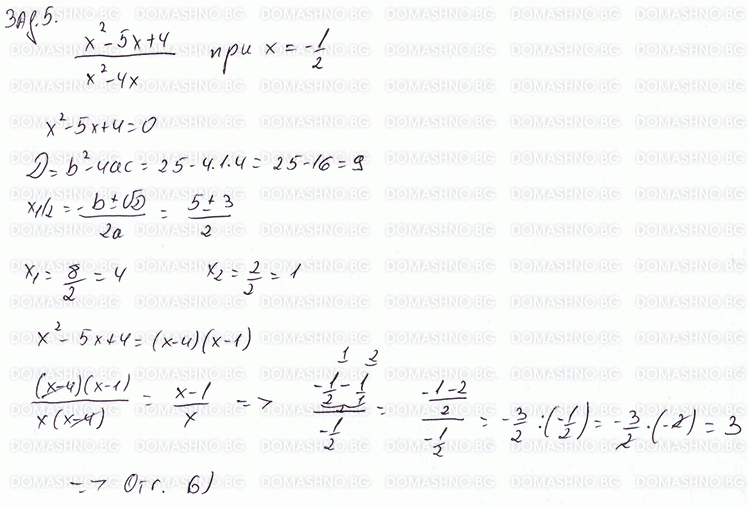 Зад. 5.
x² - 5x + 4 / x² - 4x при x = -1/2
x² - 5x + 4 = 0
D = b² - 4ac = 25 - 4.1.4 = 25 - 16 = 9
x₁/₂ = -b ± √D / 2a = 5 ± 3 / 2
x₁ = 8/2 = 4 x₂ = 2/2 = 1
x² - 5x + 4 = (x-4)(x-1)
(x-4)(x-1) / x(x-4) = x-1 / x => (-1/2 - 1/1) / (-1/2) = ((-1-2)/2) / (-1/2) = -3/2 : (-1/2) = -3/2 . (-2) = 3
=> Отг. б)
DOMASHNO.BG